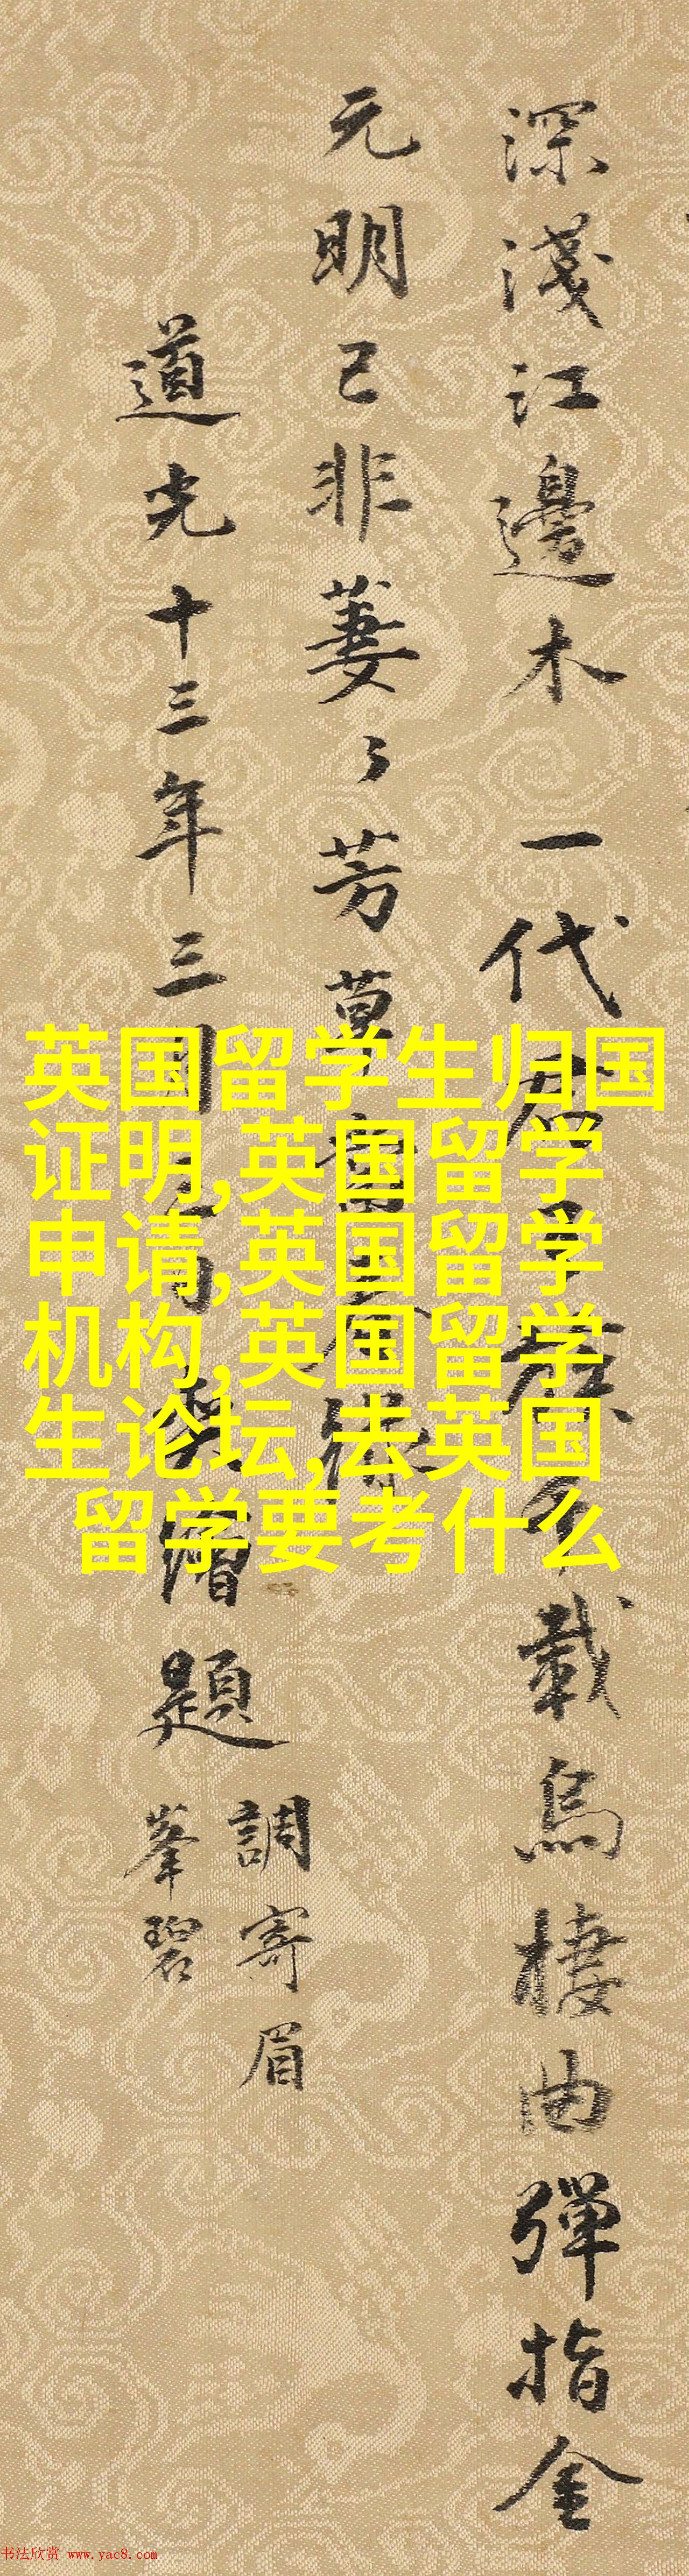 深淺江邊木一代
載烏棲曲彈指金
元明已非萋〻芳草
道光十三年三月
題
調寄眉
峯碧
英国留学生归国
证明,英国留学
申请,英国留学
机构,英国留学
生论坛,去英国
留学要考什么
书法欣赏 www.yac8.com